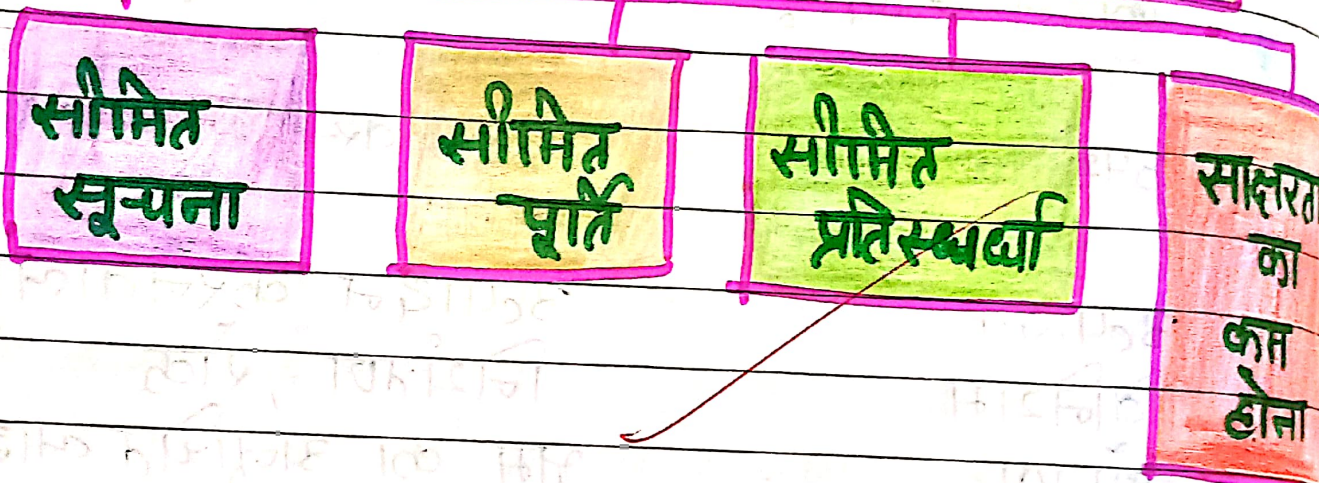 सीमित
सूचना
सीमित
पूर्ति
सीमित
प्रतिस्पर्धा
साक्षरता
का
कम
होना